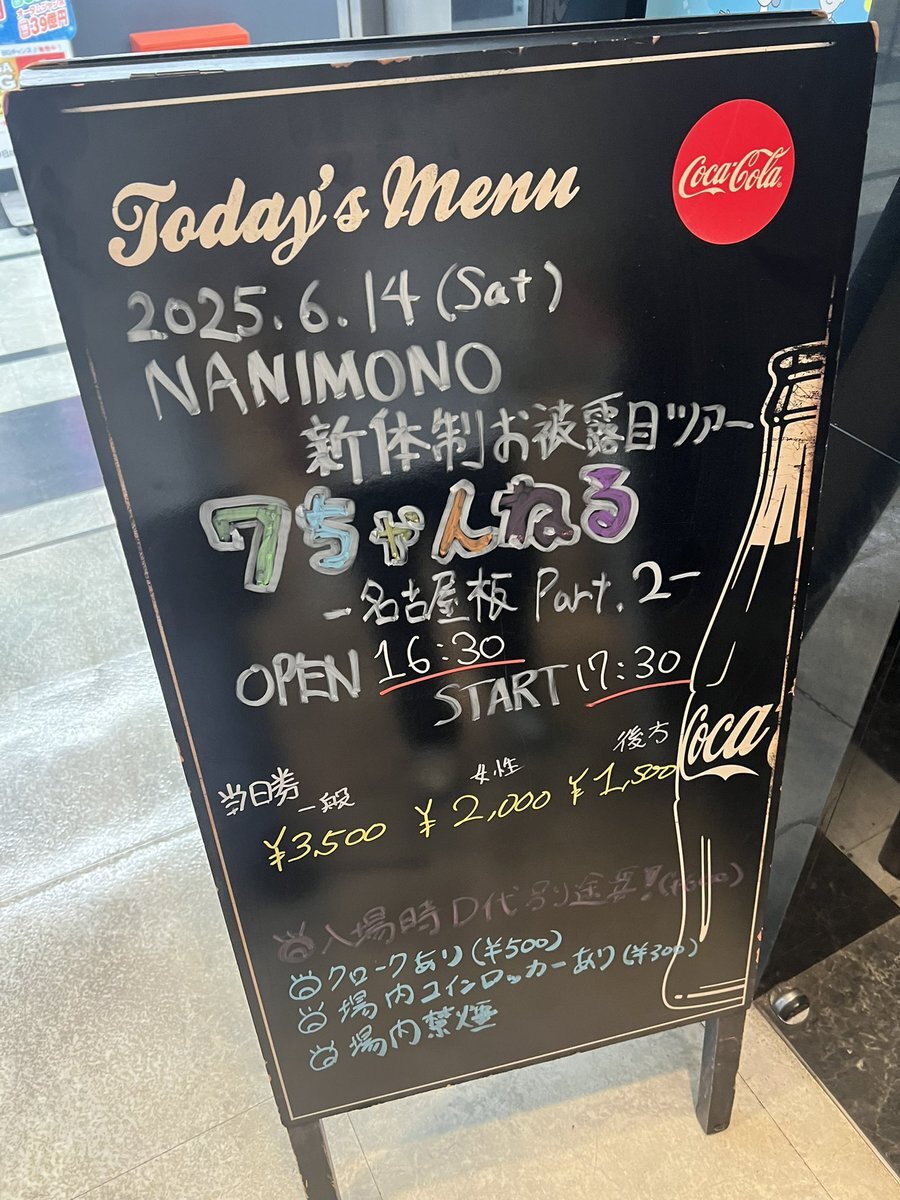 39億円
Today's Menu
Coca-Cola
2025.6.14(Sat)
NANIMONO
新体制お披露目ツアー
7ちゃんねる
-名古屋板 Part.2-
OPEN 16:30
START 17:30
当日券 一般 女性 後方
¥3,500 ¥2,000 ¥1,500
Coca
入場時D代別途要!
クロークあり(¥500)
場内コインロッカーあり(¥300)
場内禁煙